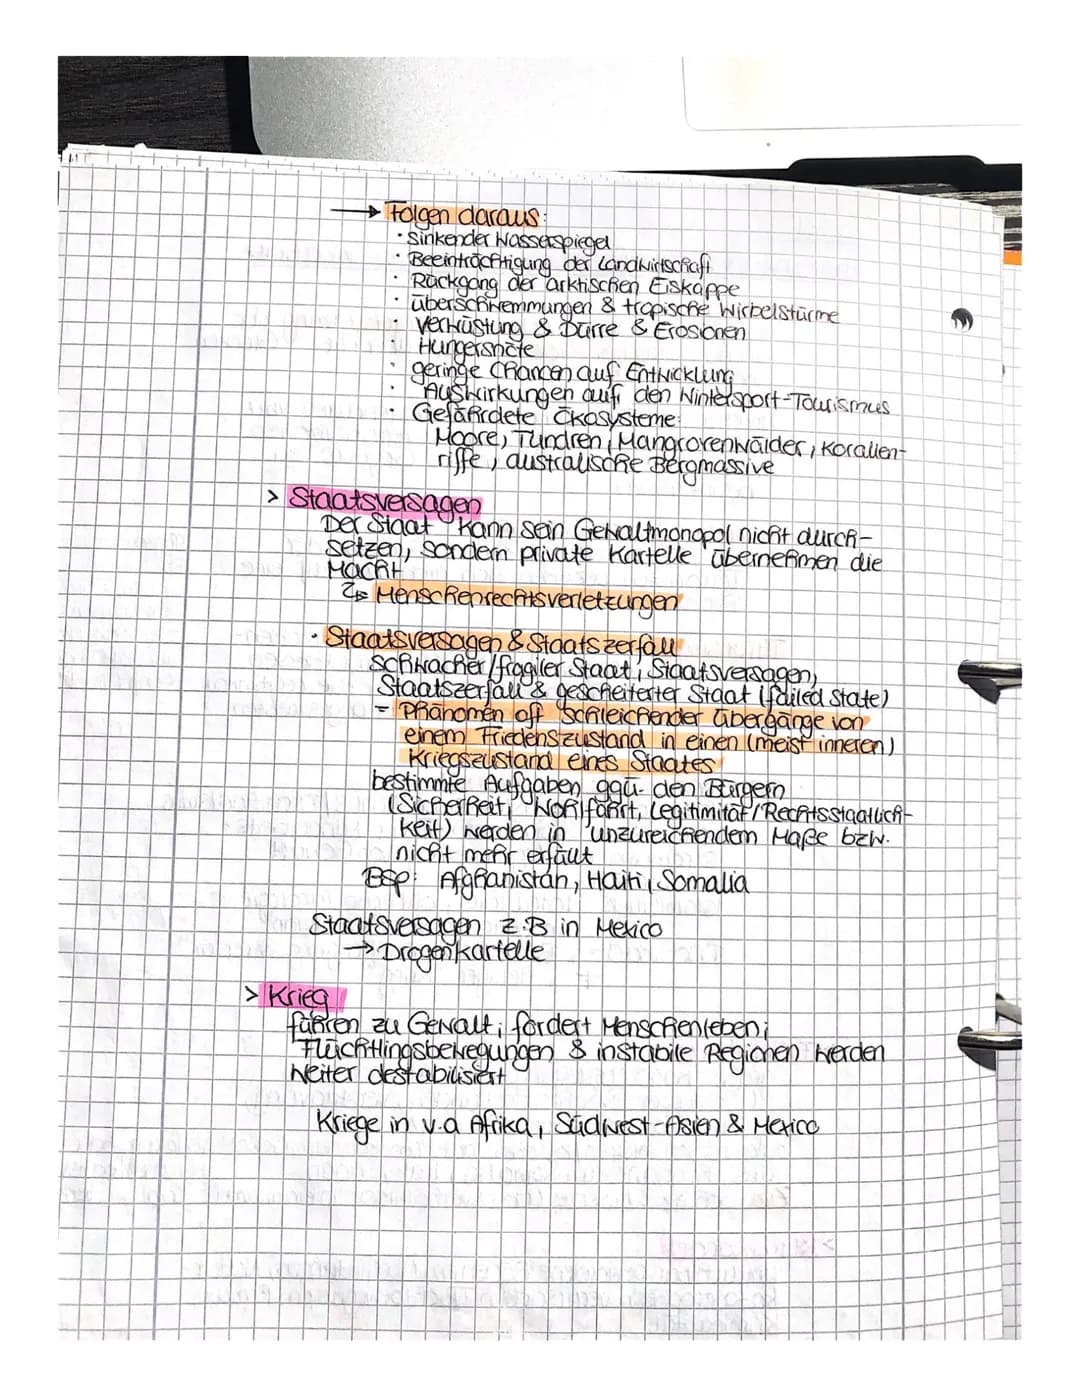 → Folgen daraus:
· Sinkender Wasserspiegel
· Beeinträchtigung der Landwirtschaft
· Rückgang der arktischen Eiskappe
· Überschwemmungen & tropische Wirbelstürme
· Verwüstung & Dürre & Erosionen
· Hungersnöte
· geringe Chancen auf Entwicklung
· Auswirkungen auf den Wintersport-Tourismus
· Gefährdete Ökosysteme:
Moore, Tundren, Mangrovenwälder, Korallen-
riffe, australische Bergmassive
> Staatsversagen
Der Staat kann sein Gewaltmonopol nicht durch-
setzen, sondern private Kartelle übernehmen die
Macht
↳ Menschenrechtsverletzungen
· Staatsversagen & Staatszerfall
schwacher/fragiler Staat, Staatsversagen,
Staatszerfall & gescheiterter Staat (failed State)
= Phänomen oft schleichender Übergänge von
einem Friedenszustand in einen (meist inneren)
Kriegszustand eines Staates
bestimmte Aufgaben ggü. den Bürgern
(Sicherheit, Wohlfahrt, Legitimität/Rechtsstaatlich-
keit) werden in unzureichendem Maße bzw.
nicht mehr erfüllt
Bsp: Afghanistan, Haiti, Somalia
Staatsversagen z.B in Mexico
→ Drogenkartelle
> Krieg
führen zu Gewalt; fordert Menschenleben;
Flüchtlingsbewegungen & instabile Regionen werden
weiter destabilisiert
Kriege in v.a Afrika, Südwest-Asien & Mexico